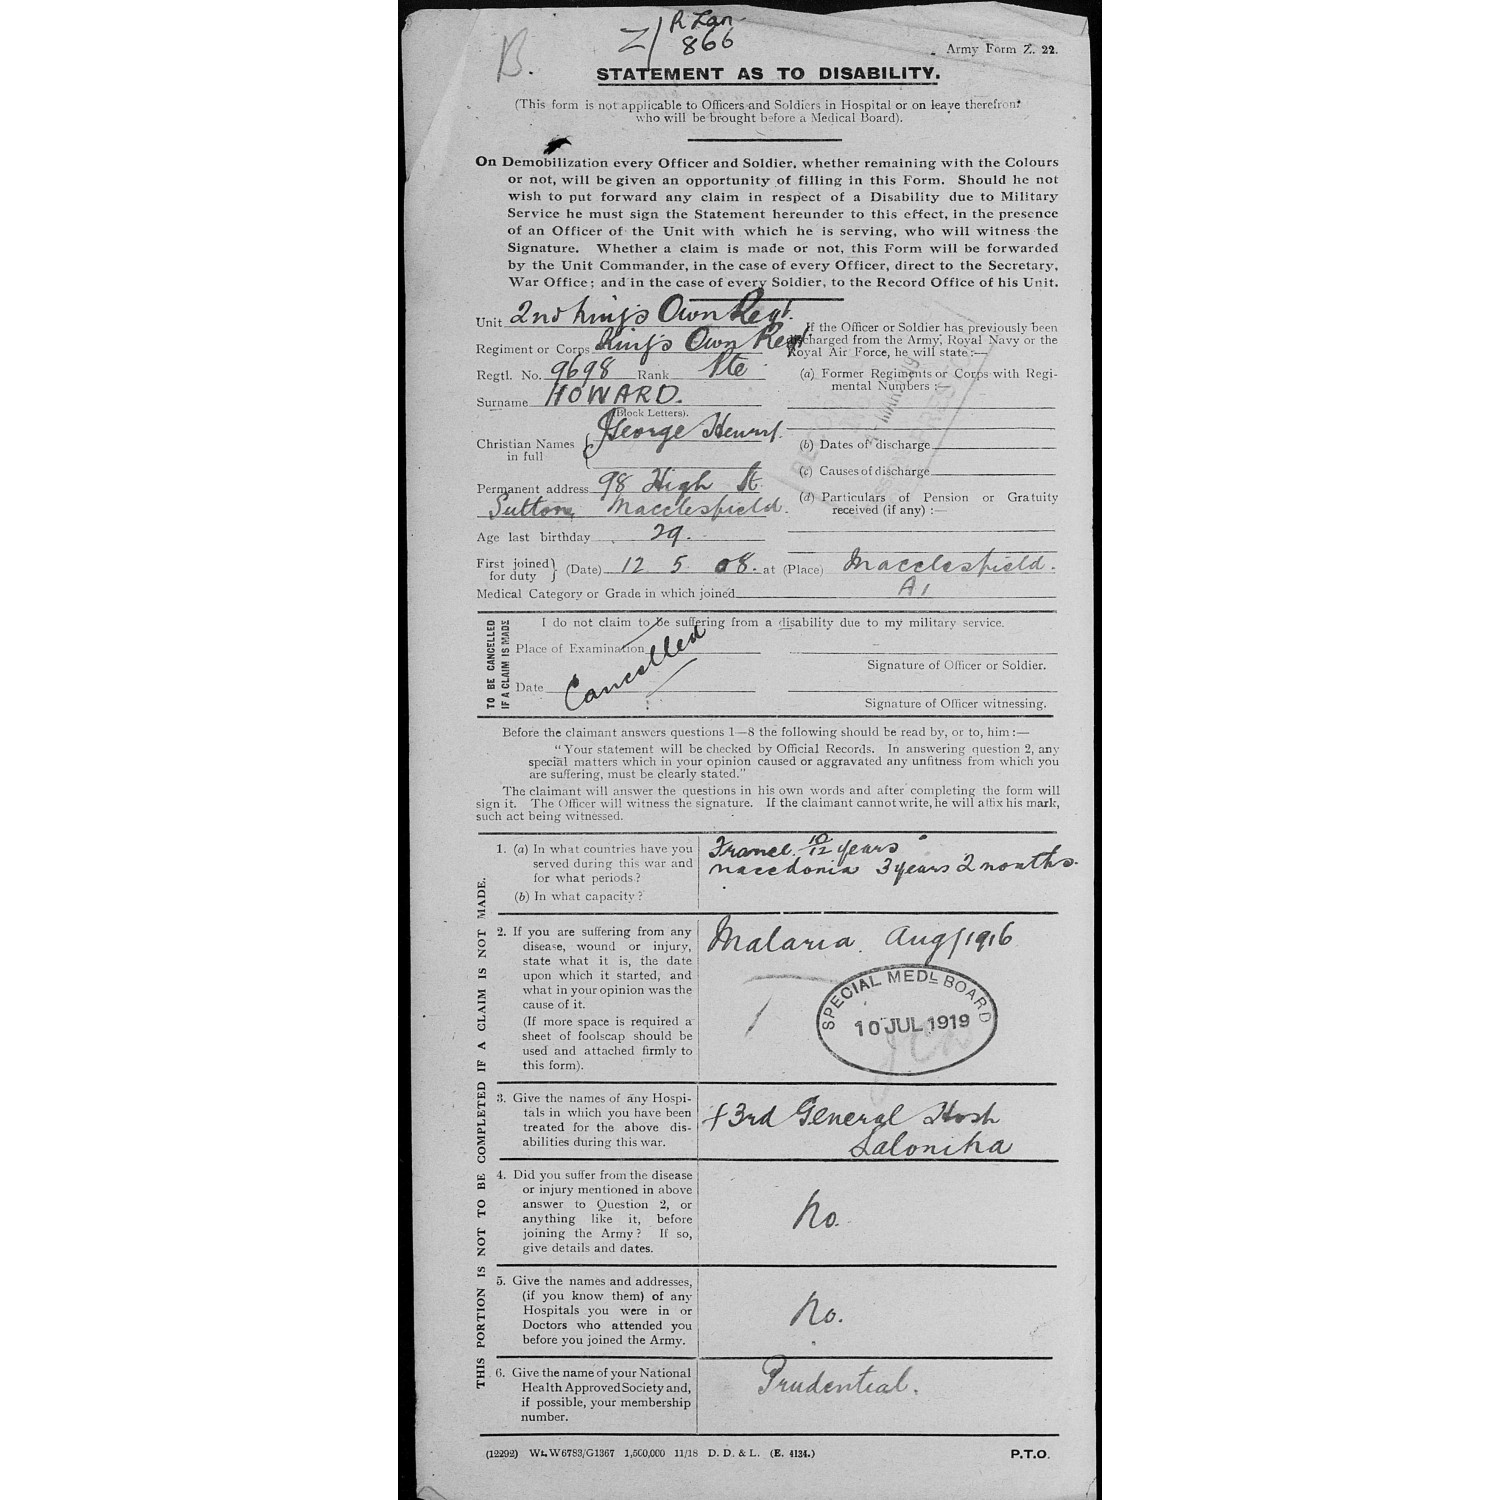 B.
Z/ R Lan
866
Army Form Z. 22.
STATEMENT AS TO DISABILITY.
(This form is not applicable to Officers and Soldiers in Hospital or on leave therefrom
who will be brought before a Medical Board).
On Demobilization every Officer and Soldier, whether remaining with the Colours
or not, will be given an opportunity of filling in this Form. Should he not
wish to put forward any claim in respect of a Disability due to Military
Service he must sign the Statement hereunder to this effect, in the presence
of an Officer of the Unit with which he is serving, who will witness the
Signature. Whether a claim is made or not, this Form will be forwarded
by the Unit Commander, in the case of every Officer, direct to the Secretary,
War Office; and in the case of every Soldier, to the Record Office of his Unit.
Unit 2nd King's Own Regt.
Regiment or Corps King's Own Regt
Regtl. No. 9698 Rank Pte
Surname HOWARD.
(Block Letters).
Christian Names in full George Henry.
Permanent address 98 High St.
Sutton, Macclesfield.
Age last birthday 29.
If the Officer or Soldier has previously been
discharged from the Army, Royal Navy or the
Royal Air Force, he will state:—
(a) Former Regiments or Corps with Regi-
mental Numbers :—
(b) Dates of discharge
(c) Causes of discharge
(d) Particulars of Pension or Gratuity
received (if any) :—
First joined for duty } (Date) 12 5 08. at (Place) Macclesfield.
Medical Category or Grade in which joined A1
TO BE CANCELLED
IF A CLAIM IS MADE
I do not claim to be suffering from a disability due to my military service.
Place of Examination
Signature of Officer or Soldier.
Cancelled
Date
Signature of Officer witnessing.
Before the claimant answers questions 1—8 the following should be read by, or to, him :—
"Your statement will be checked by Official Records. In answering question 2, any
special matters which in your opinion caused or aggravated any unfitness from which you
are suffering, must be clearly stated."
The claimant will answer the questions in his own words and after completing the form will
sign it. The Officer will witness the signature. If the claimant cannot write, he will affix his mark,
such act being witnessed.
THIS PORTION IS NOT TO BE COMPLETED IF A CLAIM IS NOT MADE.
1. (a) In what countries have you
served during this war and
for what periods?
(b) In what capacity?
France. 10/12 years
Macedonia 3 years 2 months.
2. If you are suffering from any
disease, wound or injury,
state what it is, the date
upon which it started, and
what in your opinion was the
cause of it.
(If more space is required a
sheet of foolscap should be
used and attached firmly to
this form).
Malaria. Aug/1916
SPECIAL MEDL BOARD
10 JUL 1919
3. Give the names of any Hospi-
tals in which you have been
treated for the above dis-
abilities during this war.
+ 3rd General Hosh
Salonika
4. Did you suffer from the disease
or injury mentioned in above
answer to Question 2, or
anything like it, before
joining the Army? If so,
give details and dates.
No.
5. Give the names and addresses,
(if you know them) of any
Hospitals you were in or
Doctors who attended you
before you joined the Army.
No.
6. Give the name of your National
Health Approved Society and,
if possible, your membership
number.
Prudential.
(12292) Wt. W6783/G1367 1,500,000 11/18 D. D. & L. (E. 4134.)
P.T.O.